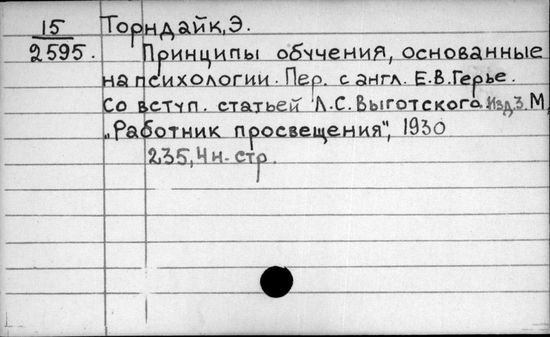 15 Торндайк, Э.
2595. Принципы обучения, основанные
на психологии. Пер. с англ. Е.В.Герье.
Со вступ. статьей Л.С.Выготского. Изд 3. М,
„Работник просвещения", 1930
235, 4 н. стр.